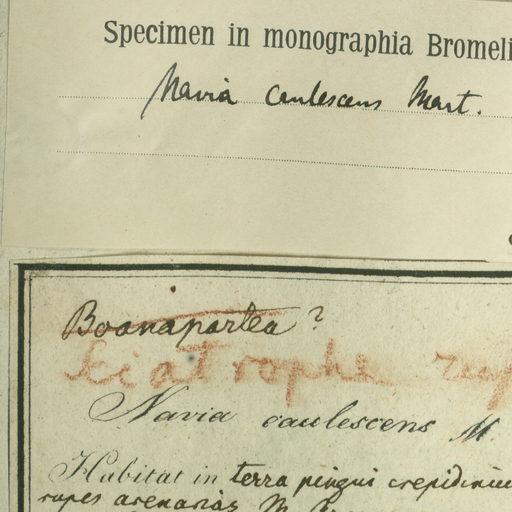 Specimen in monographia Bromeli
Navia caulescens Mart.
Boanapartea ?
Navia caulescens M
Habitat in terra pingui crepidini
rupes arenarias M.